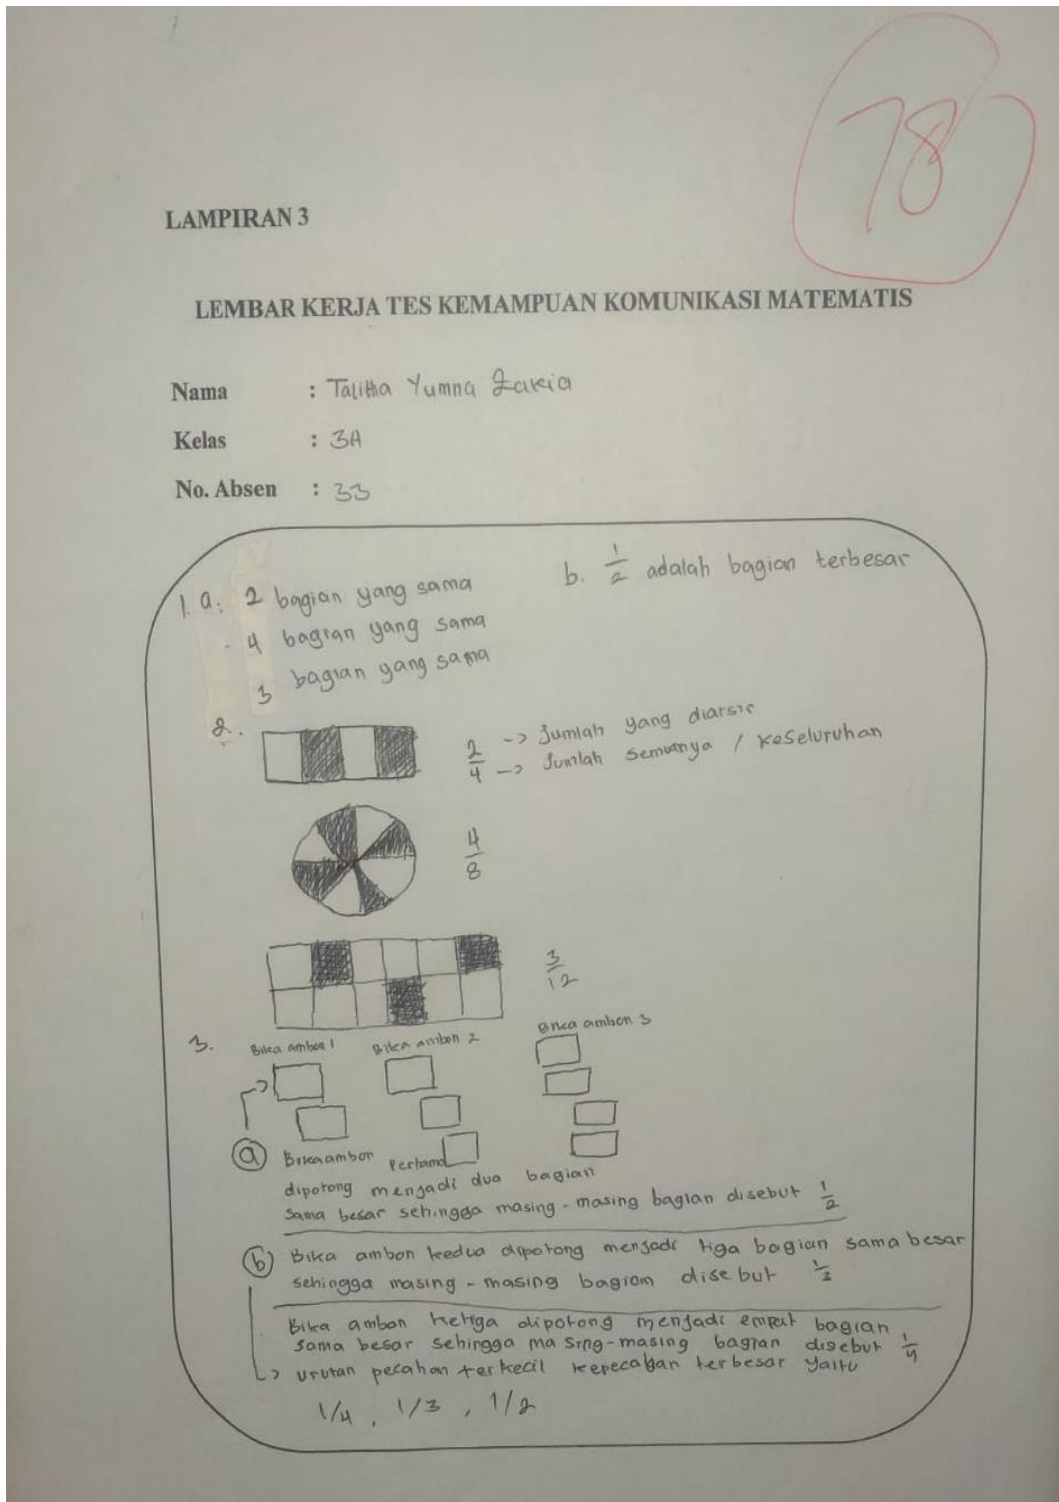 78
LAMPIRAN 3
LEMBAR KERJA TES KEMAMPUAN KOMUNIKASI MATEMATIS
Nama : Talitha Yumna Zakia
Kelas : 3A
No. Absen : 33
1. a. 2 bagian yang sama
4 bagian yang sama
3 bagian yang sama
b. 1/2 adalah bagian terbesar
2.
2/4 -> Jumlah yang diarsir
-> Jumlah semuanya / keseluruhan
4/8
3/12
3. Bika ambon 1 Bika ambon 2 Bika ambon 3
a Bika ambon Pertama
dipotong menjadi dua bagian
sama besar sehingga masing-masing bagian disebut 1/2
b Bika ambon kedua dipotong menjadi tiga bagian sama besar
sehingga masing-masing bagian disebut 1/3
Bika ambon ketiga dipotong menjadi empat bagian
sama besar sehingga masing-masing bagian disebut 1/4
-> urutan pecahan terkecil kepecahan terbesar yaitu
1/4, 1/3, 1/2